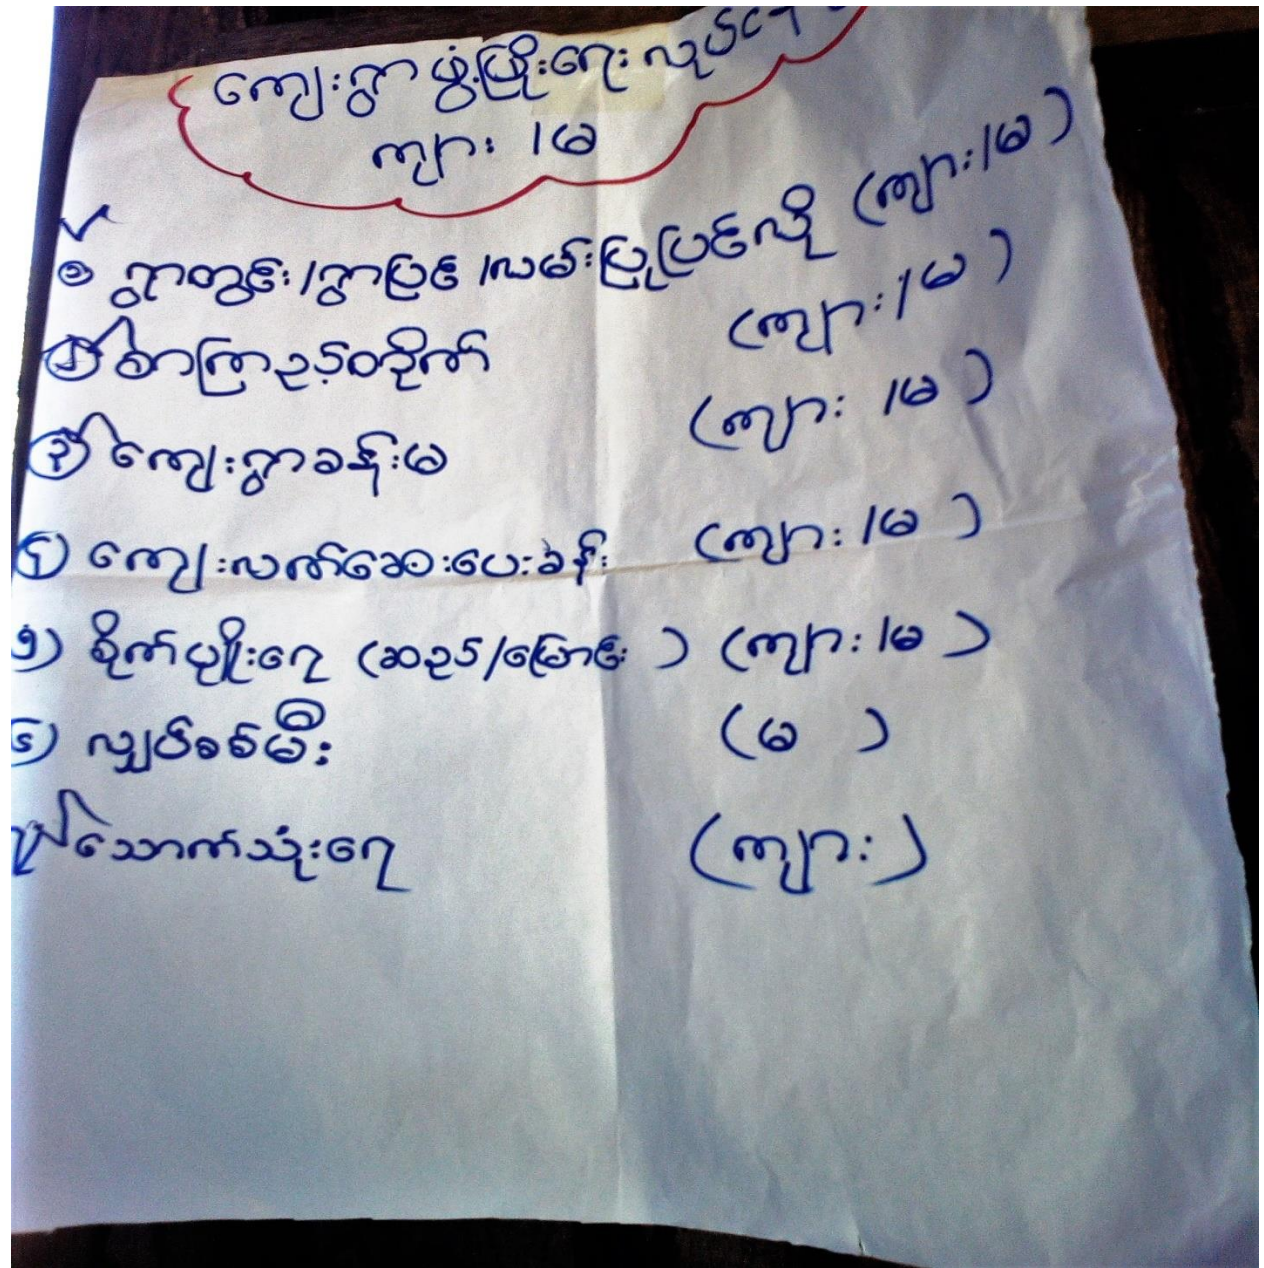 ကျေးရွာဖွံ့ဖြိုးရေးလုပ်ငန်း
ကျား/မ
၁ ရွာတွင်း/ရွာပြင်/လမ်းပြုပြင်လို (ကျား/မ)
၂ စာကြာည့်ဝဒိုက် (ကျား/မ)
၃ ကျေးရွာခန်းမ (ကျား/မ)
၄) ကျေးလက်ဆေးပေးခန်း (ကျား/မ)
၅) စိုက်ပျိုးရေ (ဆည်/မြောင်း) (ကျား/မ)
၆) လျှပ်စစ်မီး (မ)
၇ သောက်သုံးရေ (ကျား)